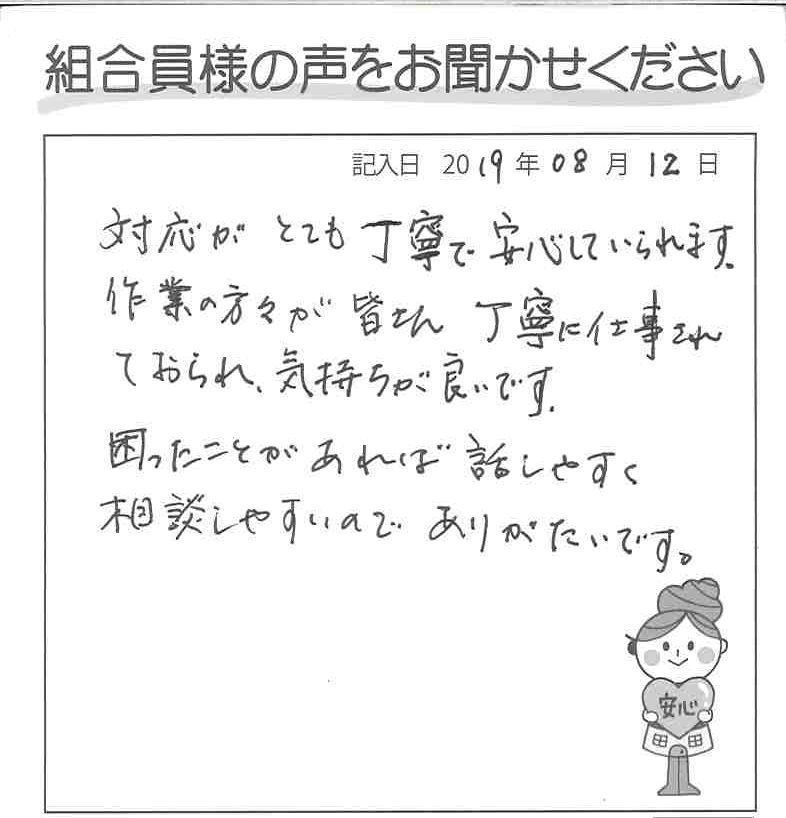 組合員様の声をお聞かせください
記入日 2019年08月12日
対応がとても丁寧で安心していられます。
作業の方々が皆さん丁寧に仕事され
ておられ、気持ちが良いです。
困ったことがあれば話しやすく
相談しやすいので ありがたいです。
安心